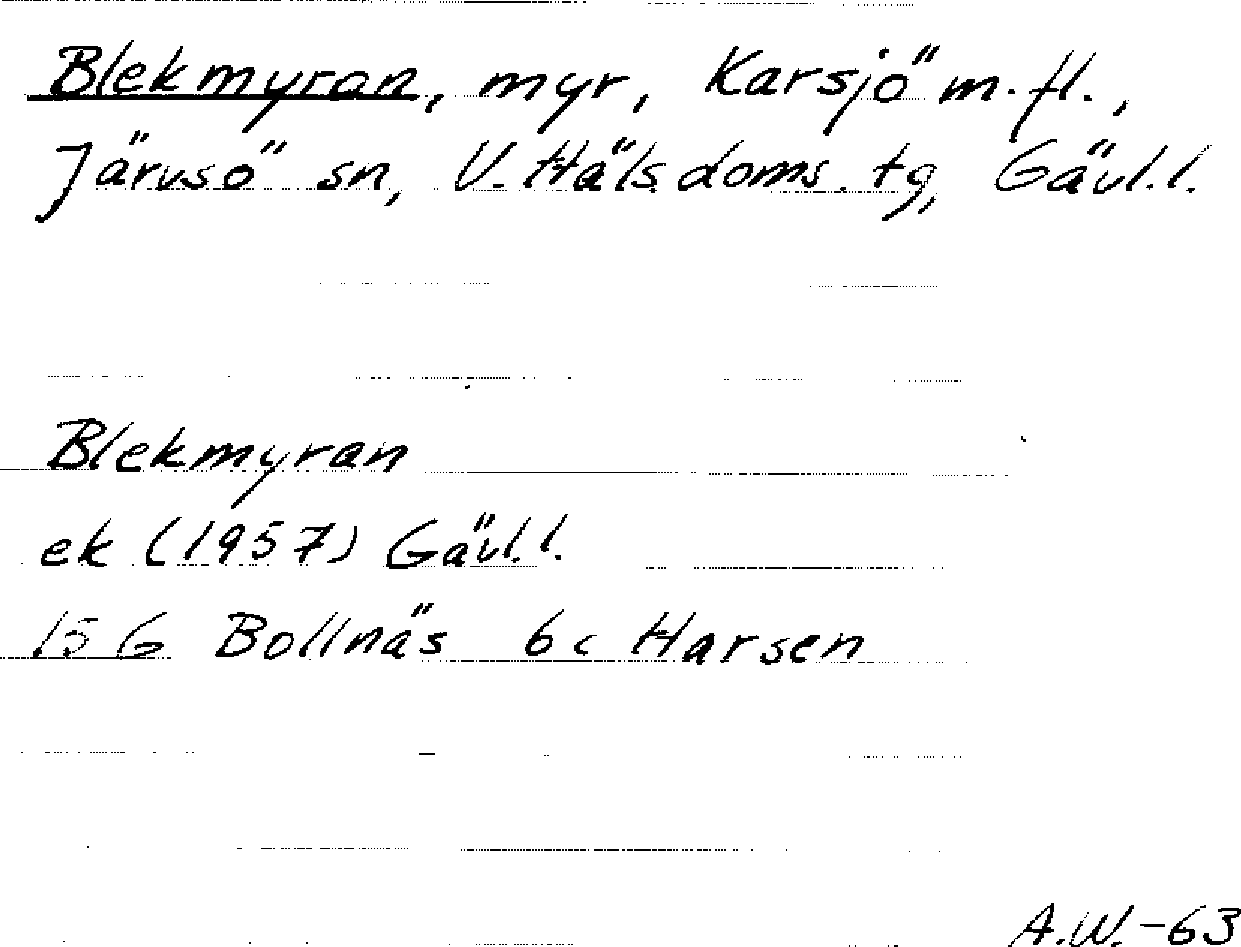 Blekmyran, myr, Karsjö m.fl.,
Järvsö sn, V. Häls. doms. tg, Gävl.l.
Blekmyran
ek (1957) Gävl.l.
15 G Bollnäs 6c Harsen
A.W.-63